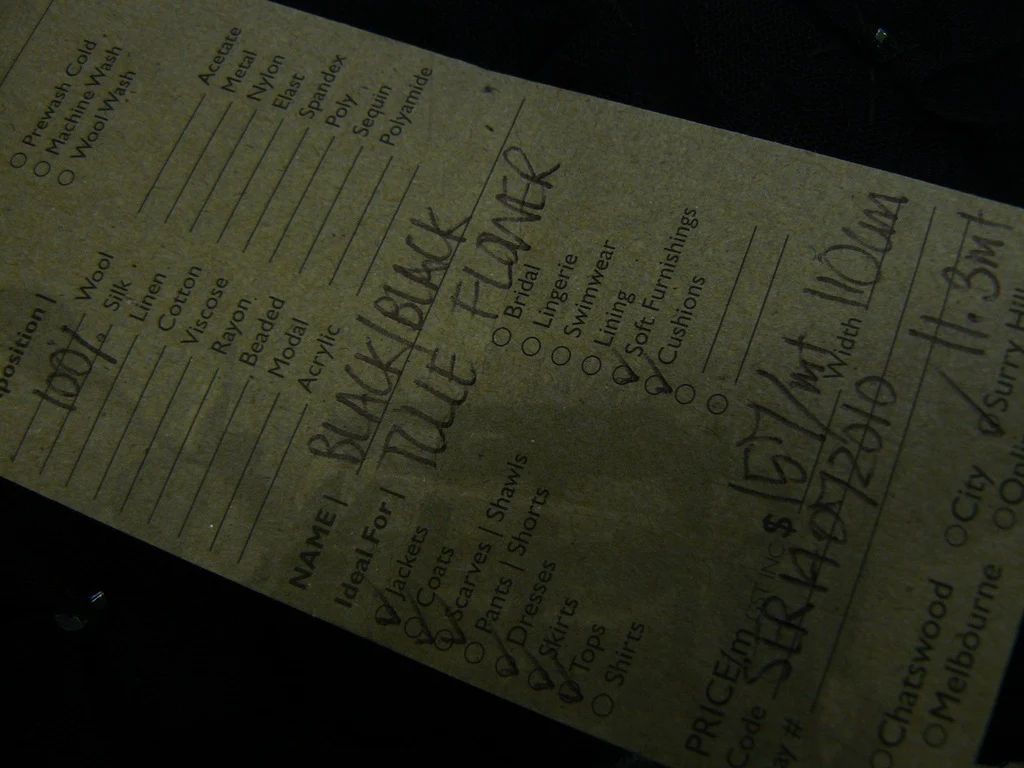 Prewash Cold
Machine Wash
Wool Wash
position |
100% Wool
Silk
Linen
Cotton
Viscose
Rayon
Beaded
Modal
Acrylic
Acetate
Metal
Nylon
Elast
Spandex
Poly
Sequin
Polyamide
NAME | BLACK/BLACK
TULLE FLOWER
Ideal For |
Jackets
Coats
Scarves | Shawls
Pants | Shorts
Dresses
Skirts
Tops
Shirts
Bridal
Lingerie
Swimwear
Lining
Soft Furnishings
Cushions
PRICE/m $ 157/mt
GST INC
Width 110cm
Code
ay # 11.3mt
Chatswood City Surry Hill
Melbourne Onli